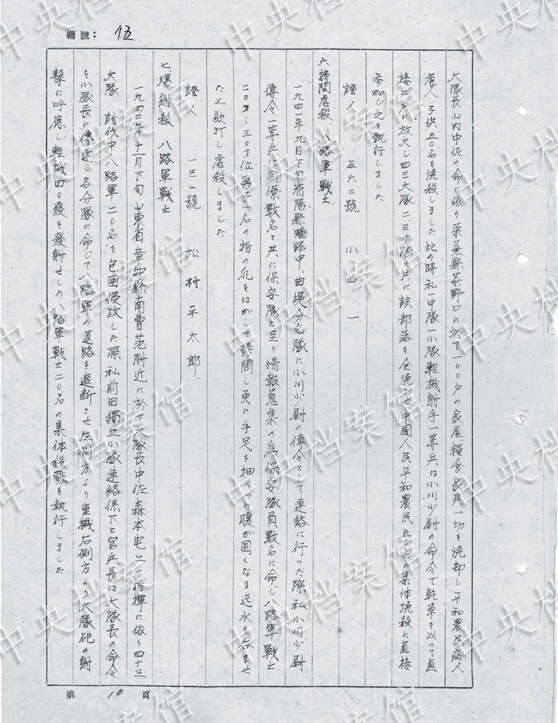 編號： 伍
大隊長山内中佐の命に依り莱蕪縣茶野口に於て一〇〇戸の家屋、糧食家具一切を焼却し平和農民病人
老人、子供五〇名を焼殺しました 此の時私一中隊一小隊軽機射手一等兵は小川少尉の命令で乾草を以って直
接二戸に放火し四三大隊二、三中隊と共に該部落を全焼せ中国人民平和農民五〇名の集体焼殺に直接
参加し之を執行しました
證人 五六二號 小山 一
六、拷問虐殺 八路軍戦士
一九四一年九月下旬 中、曲呉分屯隊に小川少尉の傳令として連絡に行った際 私小川少尉
傳令一等兵は同僚数名と共に保安隊に至り情報蒐集の為保安隊員数名に命じ八路軍戦士
二〇才～三〇才位男一名の指の爪をはがして拷問し更に手足を押へつけ腹が固くなる迄水を呑ませ
た上殴打し虐殺しました
證人 一 號 松村平太郎
七、爆射殺 八路軍戦士
一九四二年十一月下旬 山東省章邱縣南曹范附近に於て大隊長中佐森本 二の指揮に依り四十三
大隊 討伐中、八路軍二〇名を包囲侵攻した際、私前田獨立小隊連絡係下士官兵長は大隊長の命令
を小隊長に傳達し各分隊に命じて八路軍の退路を遮断させ左側方より重機右側方より大隊砲の射
撃に呼應し軽機四〇發を發射せしめ八路軍戦士二〇名の集体殺戮を執行しました
第 10 頁
中央档案馆